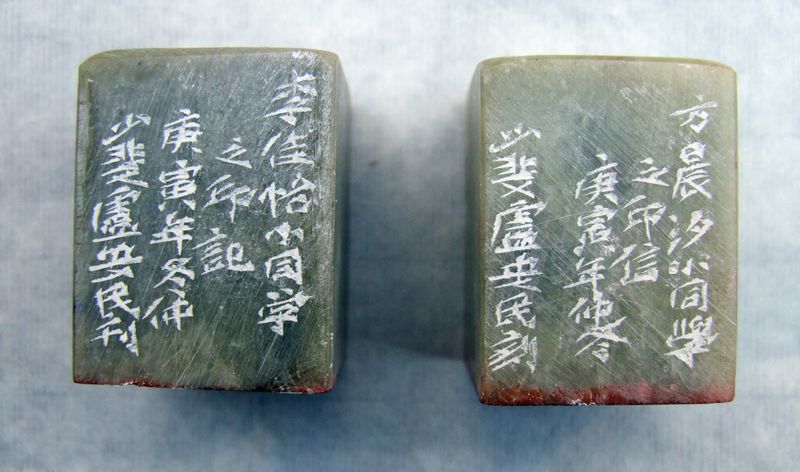 李佳怡小同学
之印記
庚寅年冬仲
少斐廬安民刊
方晨汐小同學
之印信
庚寅年仲冬
少斐廬安民刻